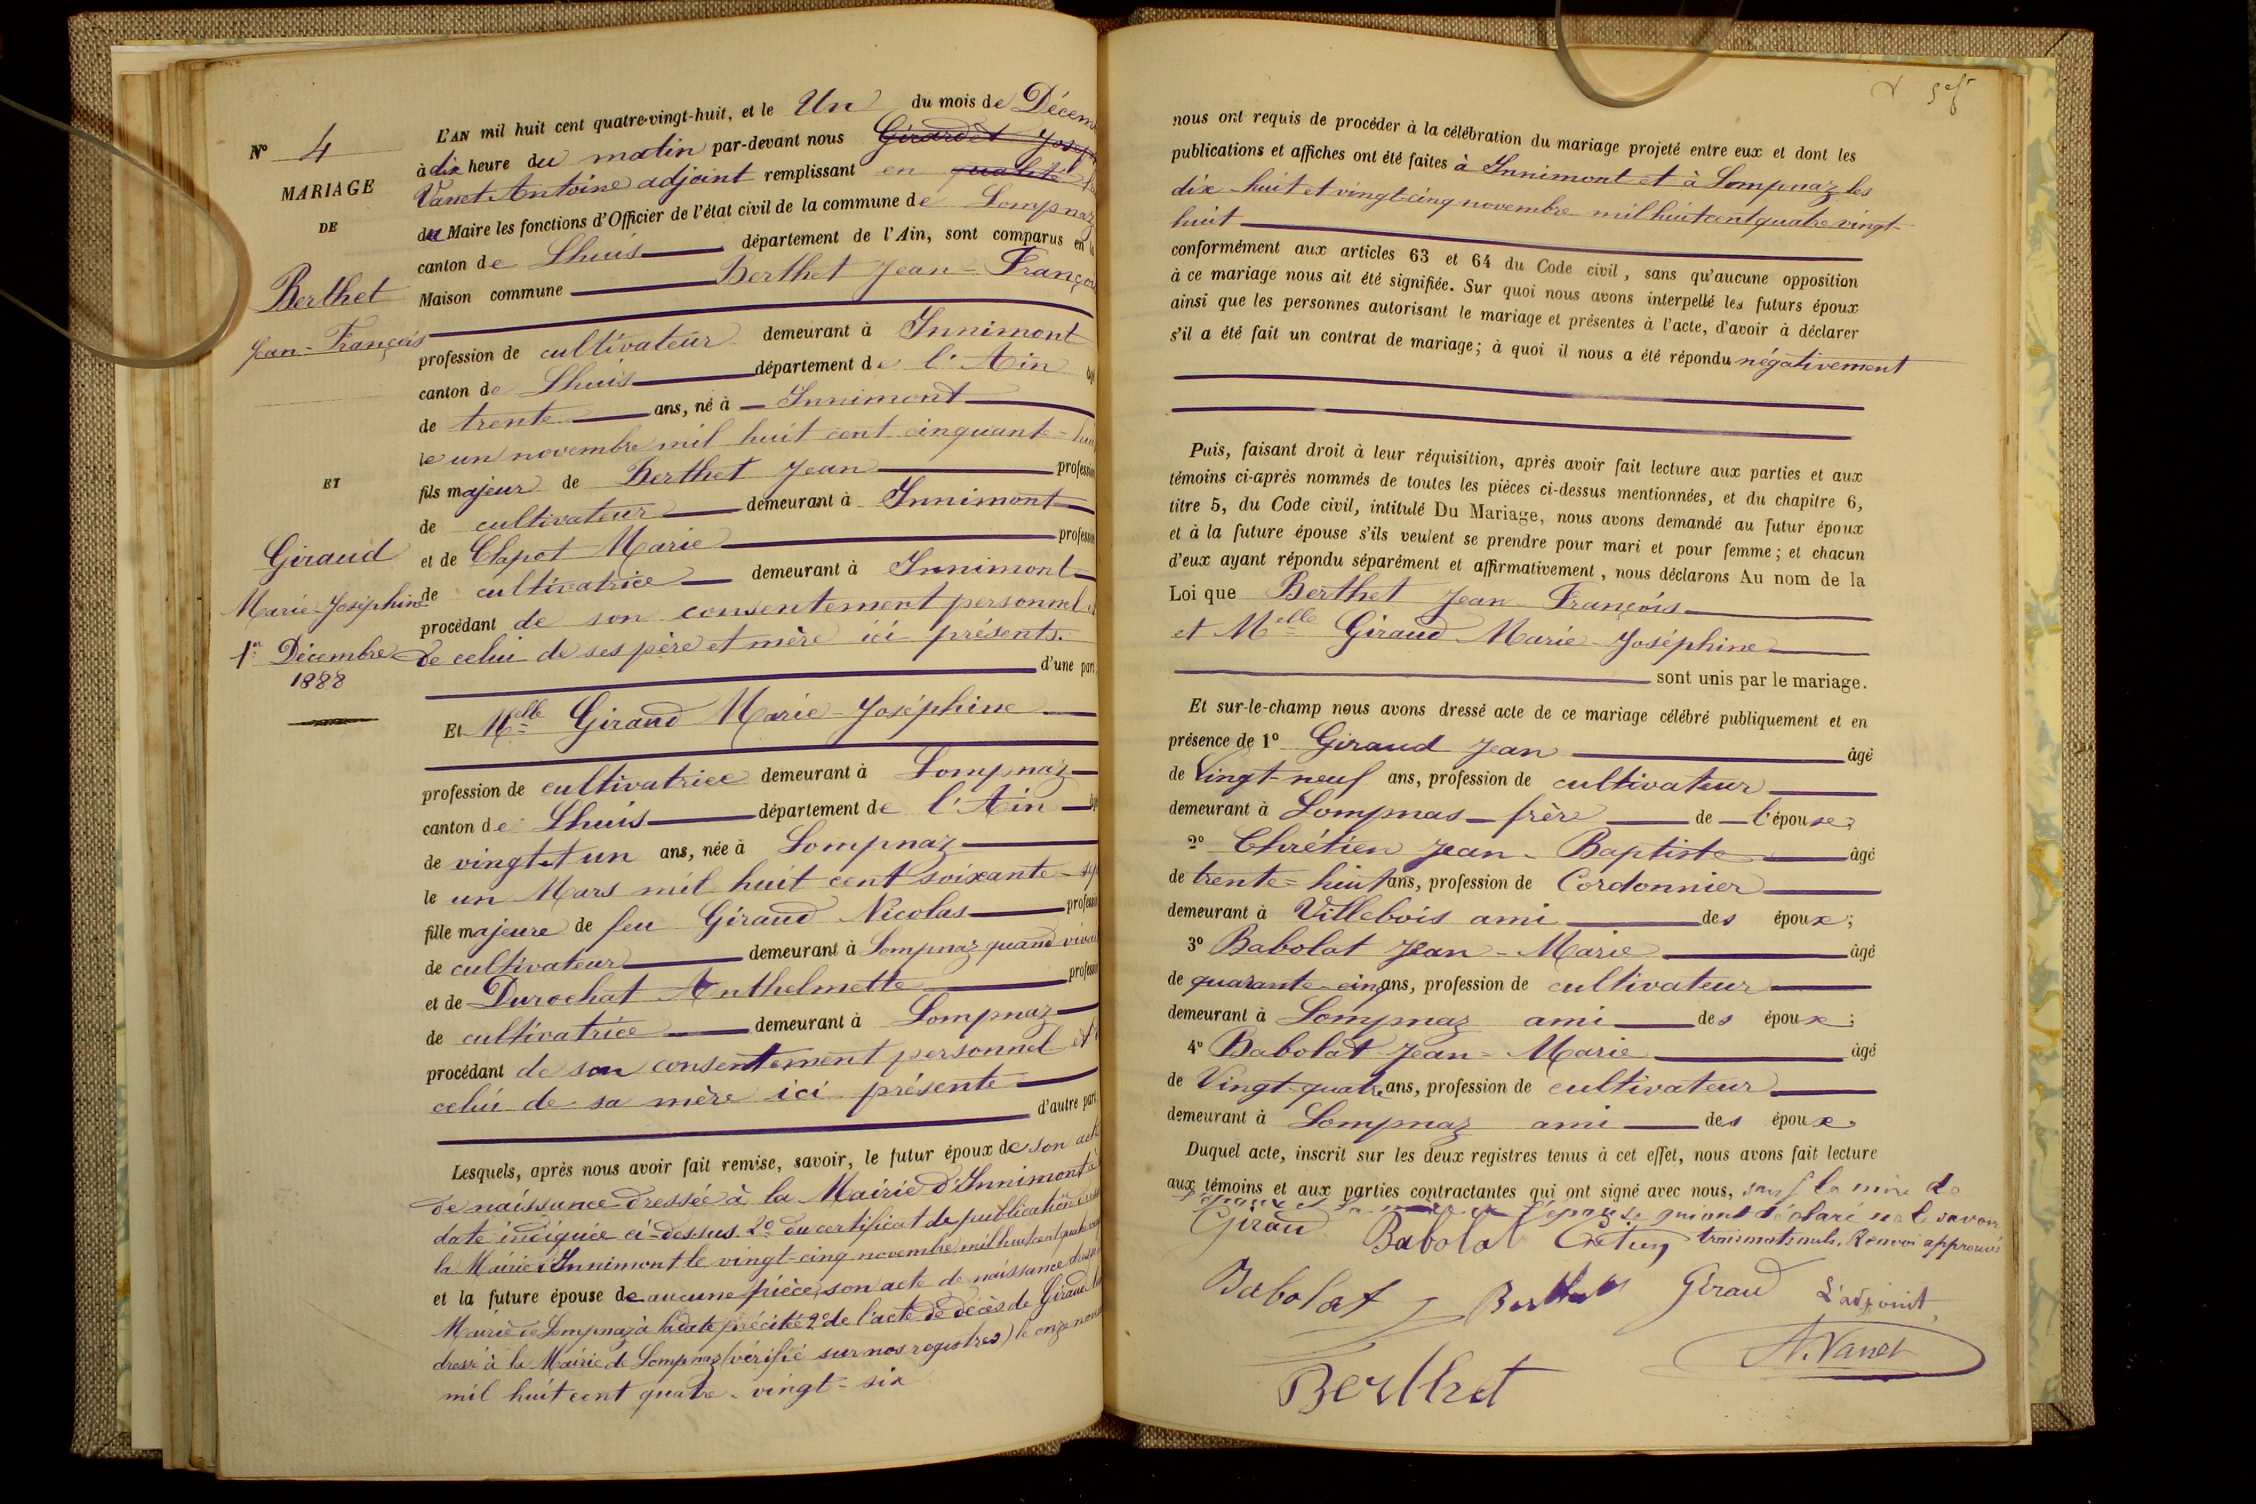 N° 4
MARIAGE
DE
Berthet
Jean-François
ET
Giraud
Marie-Joséphine
1er Décembre
1888
L'AN mil huit cent quatre-vingt-huit, et le Un du mois de Décem
à dix heure du matin par-devant nous Girardet Joseph
Vanet Antoine adjoint remplissant en qualité
du Maire les fonctions d'Officier de l'état civil de la commune de Lompnaz
canton de Lhuis département de l'Ain, sont comparus en la
Maison commune Berthet Jean-François
profession de cultivateur demeurant à Innimont
canton de Lhuis département de l'Ain âgé
de trente ans, né à Innimont
le un novembre mil huit cent cinquante-huit
fils majeur de Berthet Jean profession
de cultivateur demeurant à Innimont
et de Clapot Marie profession
de cultivatrice demeurant à Innimont
procédant de son consentement personnel et
de celui de ses père et mère ici présents.
d'une part,
Et Melle Giraud Marie-Joséphine
profession de cultivatrice demeurant à Lompnaz
canton de Lhuis département de l'Ain âgé
de vingt et un ans, née à Lompnaz
le un Mars mil huit cent soixante-sep
fille majeure de feu Giraud Nicolas profession
de cultivateur demeurant à Lompnaz quand vivai
et de Durochat Anthelmette profession
de cultivatrice demeurant à Lompnaz
procédant de son consentement personnel et
celui de sa mère ici présente
d'autre part,
Lesquels, après nous avoir fait remise, savoir, le futur époux de son acte
de naissance dressée à la Mairie d'Innimont à
date indiquée ci-dessus 2° du certificat de publication
la Mairie d'Innimont le vingt-cinq novembre mil huit cent quatre
et la future épouse de aucune pièce, son acte de naissance
Mairie de Lompnaz à la date précitée 2° de l'acte de décès de Giraud
dressé à la Mairie de Lompnaz (vérifié sur nos registres) le onze
mil huit cent quatre-vingt-six
nous ont requis de procéder à la célébration du mariage projeté entre eux et dont les
publications et affiches ont été faites à Innimont et à Lompnaz les
dix-huit et vingt-cinq novembre mil huit cent quatre vingt-
huit
conformément aux articles 63 et 64 du Code civil, sans qu'aucune opposition
à ce mariage nous ait été signifiée. Sur quoi nous avons interpellé les futurs époux
ainsi que les personnes autorisant le mariage et présentes à l'acte, d'avoir à déclarer
s'il a été fait un contrat de mariage; à quoi il nous a été répondu négativement
Puis, faisant droit à leur réquisition, après avoir fait lecture aux parties et aux
témoins ci-après nommés de toutes les pièces ci-dessus mentionnées, et du chapitre 6,
titre 5, du Code civil, intitulé Du Mariage, nous avons demandé au futur époux
et à la future épouse s'ils veulent se prendre pour mari et pour femme; et chacun
d'eux ayant répondu séparément et affirmativement, nous déclarons Au nom de la
Loi que Berthet Jean-François
et Melle Giraud Marie-Joséphine
sont unis par le mariage.
Et sur-le-champ nous avons dressé acte de ce mariage célébré publiquement et en
présence de 1° Giraud Jean âgé
de Vingt-neuf ans, profession de cultivateur
demeurant à Lompnas frère de l'épouse;
2° Chrétien Jean-Baptiste âgé
de trente-huit ans, profession de Cordonnier
demeurant à Villebois ami des époux;
3° Babolat Jean-Marie âgé
de quarante-cinq ans, profession de cultivateur
demeurant à Lompnaz ami des époux;
4° Babolat Jean-Marie âgé
de Vingt-quatre ans, profession de cultivateur
demeurant à Lompnaz ami des époux.
Duquel acte, inscrit sur les deux registres tenus à cet effet, nous avons fait lecture
aux témoins et aux parties contractantes qui ont signé avec nous, sauf la mère de
l'époux et la mère de l'épouse qui ont déclaré ne le savoir
Girau Babolat trois mots nuls. Renvoi approuvé
Babolat Berthet Giraud L'adjoint,
A. Vanet
Berthet